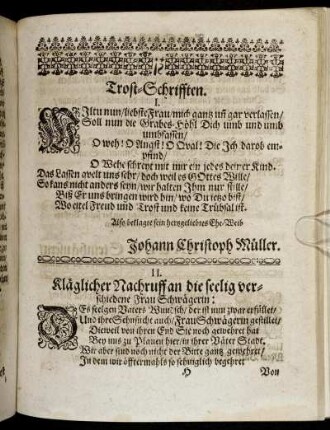 Trost-Schrifften.
I.
WIltu nun/liebste Frau/mich gantz uñ gar verlassen/
Soll nun die Grabes-Höhl Dich umb und umb
umbfassen/
O weh! O Angst! O Qval! Die Ich darob em-
pfind/
O Wehe schreyt mit mir ein jedes deiner Kind.
Das Lassen qvelt uns sehr/doch weil es GOttes Wille/
So kans nicht anders seyn/wir halten Ihm nur stille/
Biß Er uns bringen wird hin/wo Du itzo bist/
Wo eitel Freud und Trost und keine Trübsal ist.
Also beklaget sein hertzgeliebtes Ehe-Weib
Johann Christoph Müller.
II.
Kläglicher Nachruff an die seelig ver-
schiedene Frau Schwägerin:
DEs seelgen Vaters Wunsch/der ist nun zwar erfüllet/
Und ihre Sehnsucht auch/Frau Schwägerin gestillet/
Dieweil von ihren End Sie noch gewehret hat
Bey uns zu Plauen hier/in ihrer Väter Stadt.
Wir aber sind noch nicht der Bitte gantz gewehret/
In dem wir öfftermahls so sehnglich begehret
Von